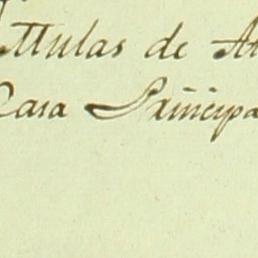 ttulas de
Casa Principa